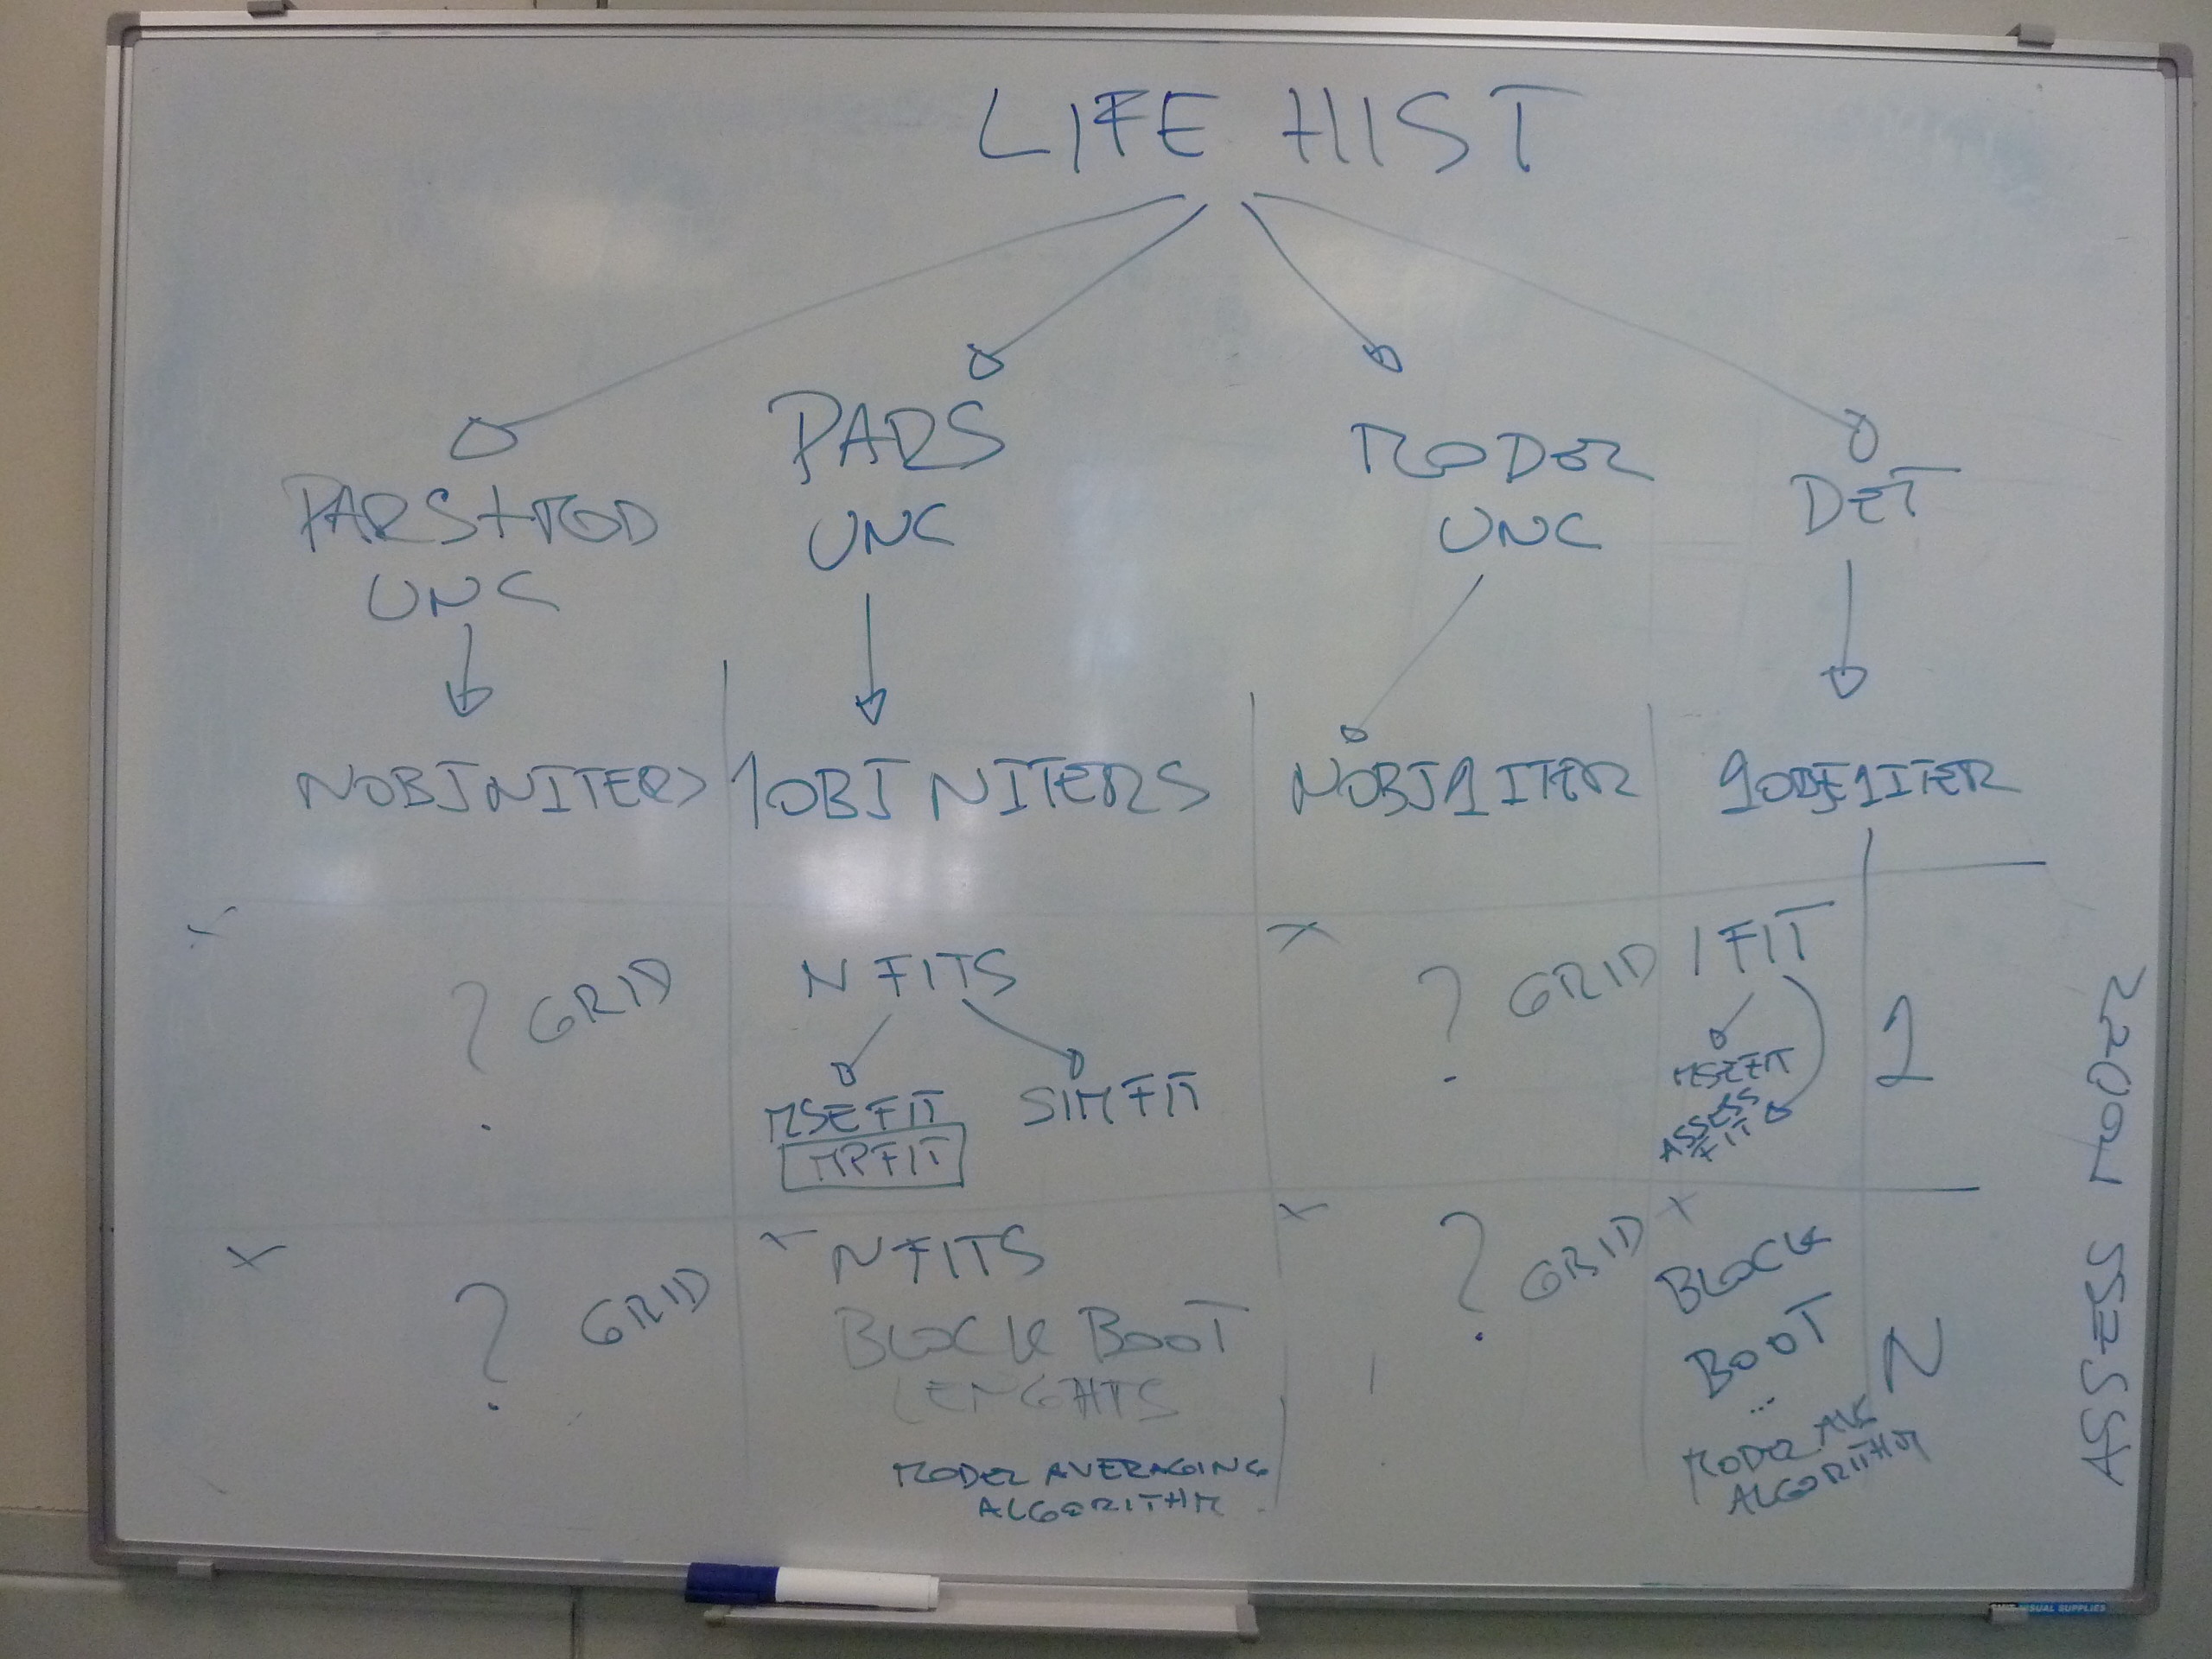 LIFE HIST
PARS+MOD
UNC
PARS
UNC
MODEL
UNC
DET
NOBJ NITERS
1OBJ NITERS
NOBJ 1 ITER
1OBJ 1 ITER
? GRID
N FITS
MSEFIT
MPFIT
SIMFIT
? GRID
1 FIT
MSEFIT
ASSESS
FIT
1
? GRID
N FITS
BLOCK BOOT
LENGHTS
MODEL AVERAGING
ALGORITHM
? GRID
BLOCK
BOOT
...
MODEL AVG
ALGORITHM
N
ASSESS MODEL
VISUAL SUPPLIES